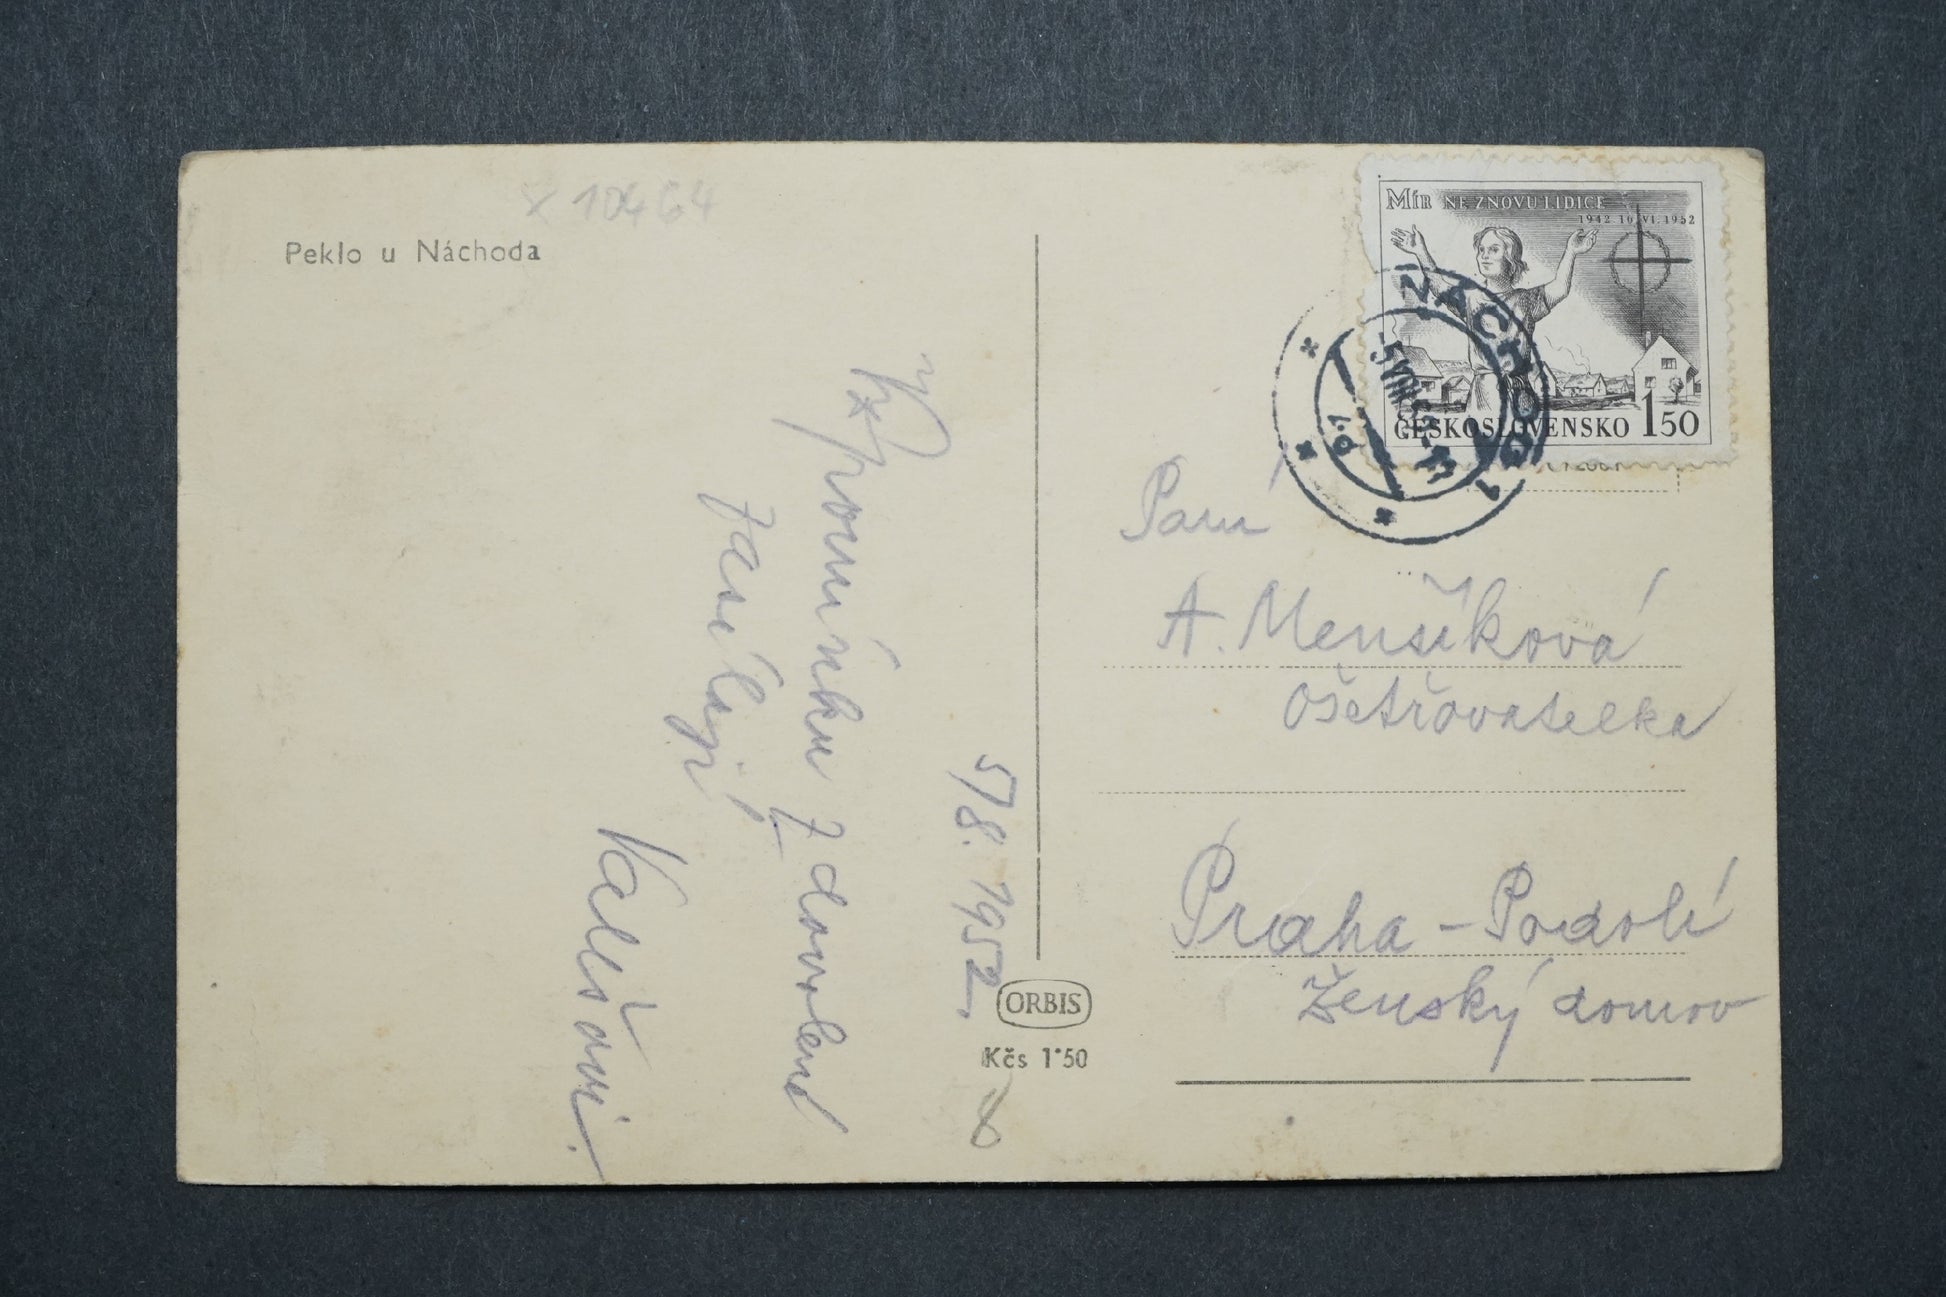 x 10464
Peklo u Náchoda
Vzpomínku z dovolené
zasílají
Vališovi.
5/8. 1952.
ORBIS
Kčs 1·50
Mír NE ZNOVU LIDICE
1942 10.VI.1952
ČESKOSLOVENSKO 1 50
NÁCHOD 1
Paní
A. Menšíková
Ošetřovatelka
Praha - Podolí
Ženský domov